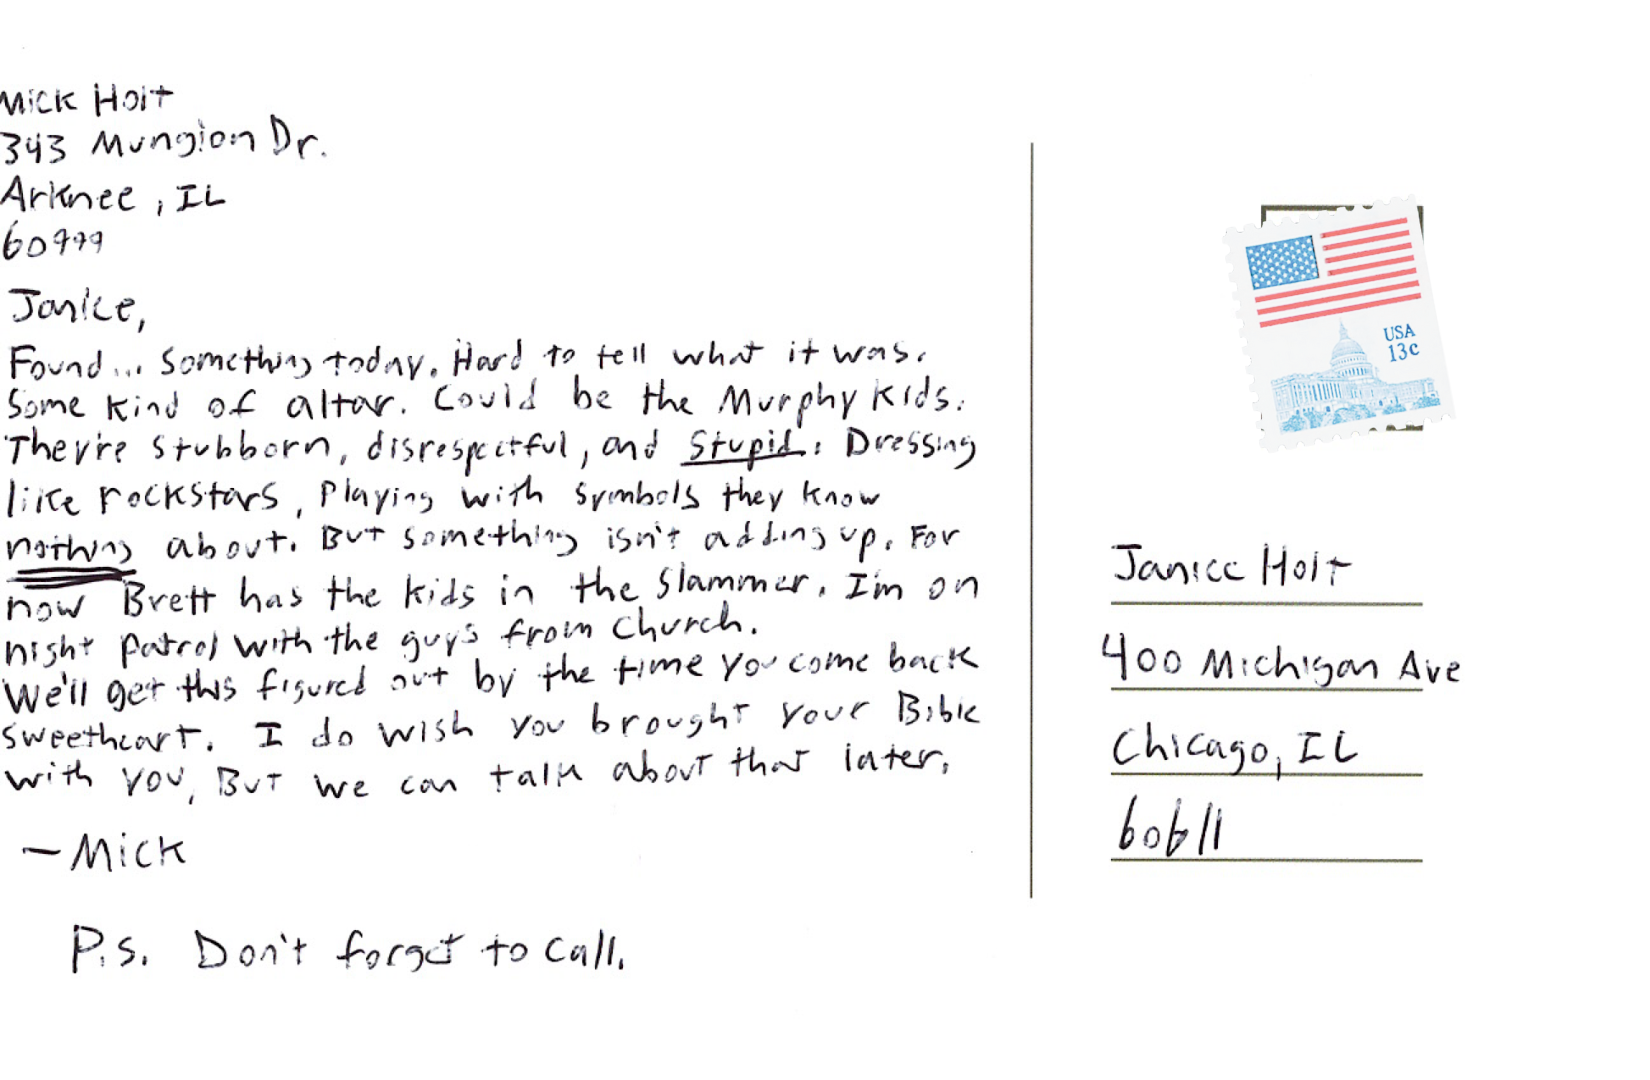 Mick Holt
343 Mungion Dr.
Arknee, IL
60999
Janice,
Found... Something today. Hard to tell what it was.
Some kind of altar. Could be the Murphy kids.
They're stubborn, disrespectful, and stupid. Dressing
like rockstars, Playing with symbols they know
nothing about. But something isn't adding up. For
now Brett has the kids in the slammer. I'm on
night patrol with the guys from church.
We'll get this figured out by the time you come back
sweetheart. I do wish you brought your Bible
with you, But we can talk about that later.
— Mick
P.S. Don't forget to call.
USA
13c
Janice Holt
400 Michigan Ave
Chicago, IL
60611